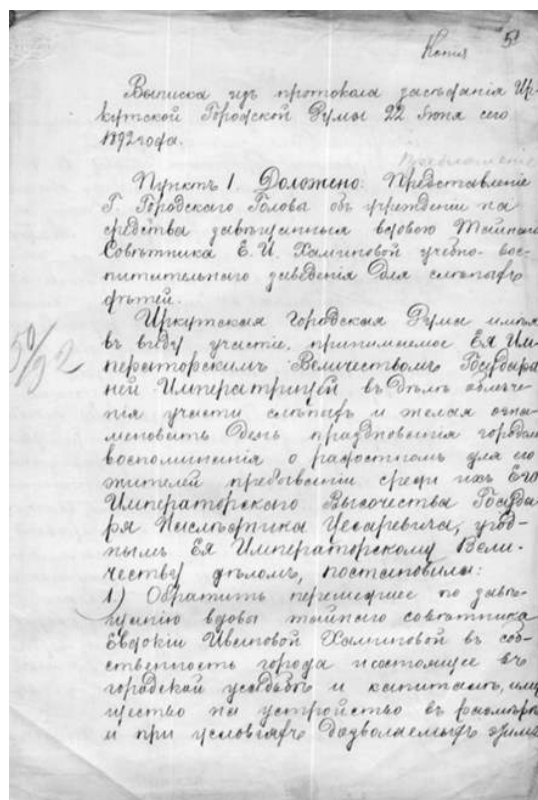 Копия
5
Выписка изъ протокола засѣданія Ир-
кутской Городской Думы 22 Іюня сего
1892 года.
Пунктъ 1. Доложено: Представленіе
Г. Городскаго Головы объ учрежденіи на
средства завѣщанныя вдовою Тайнаго
Совѣтника Е. И. Хаминовой учебно-вос-
питательнаго заведенія для слѣпыхъ
дѣтей.
Иркутская Городская Дума имѣя
въ виду участіе, принимаемое Ея Им-
ператорскимъ Величествомъ Государы-
ней Императрицей въ дѣлѣ облегче-
нія участи слѣпыхъ и желая озна-
меновать день празднованія городомъ
воспоминанія о радостномъ для его
жителей пребываніи среди ихъ Его
Императорскаго Высочества Госуда-
ря Наслѣдника Цесаревича, угод-
нымъ Ея Императорскому Вели-
честву дѣломъ, постановила:
1) Обратить перешедшее по завѣ-
щанію вдовы тайнаго совѣтника
Евдокіи Ивановой Хаминовой въ соб-
ственность города и состоящее въ
городской усадьбѣ и капиталѣ, иму-
щество на устройство въ размѣрѣ
и при условіяхъ дозволяемыхъ